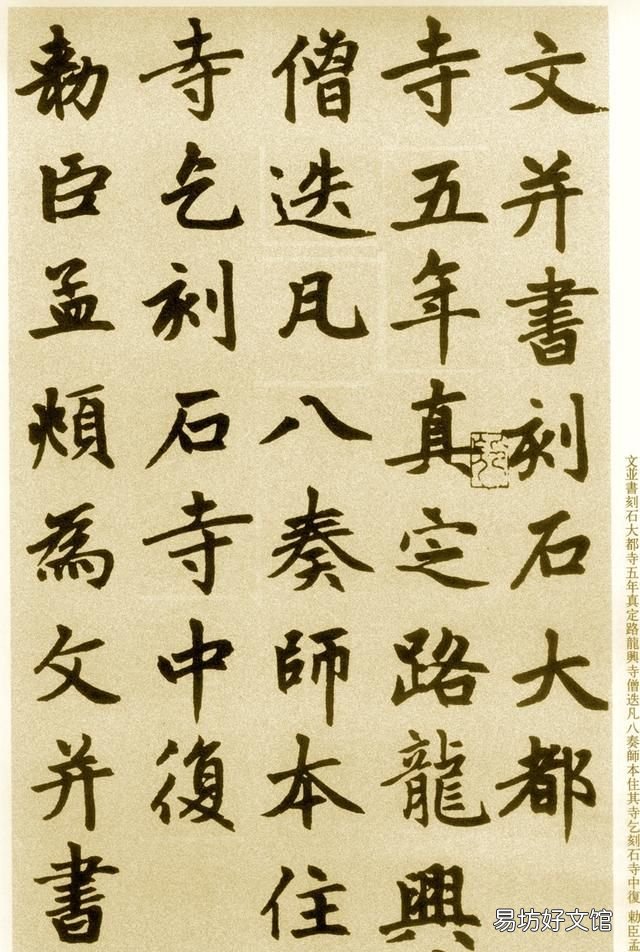 文并書刻石大都
寺五年真定路龍興
僧迭凡八奏師本住
寺乞刻石寺中復
勅臣孟頫為文并書
文並書刻石大都寺五年真定路龍興寺僧迭凡八奏師本住其寺乞刻石寺中復 勅臣孟
易坊好文馆